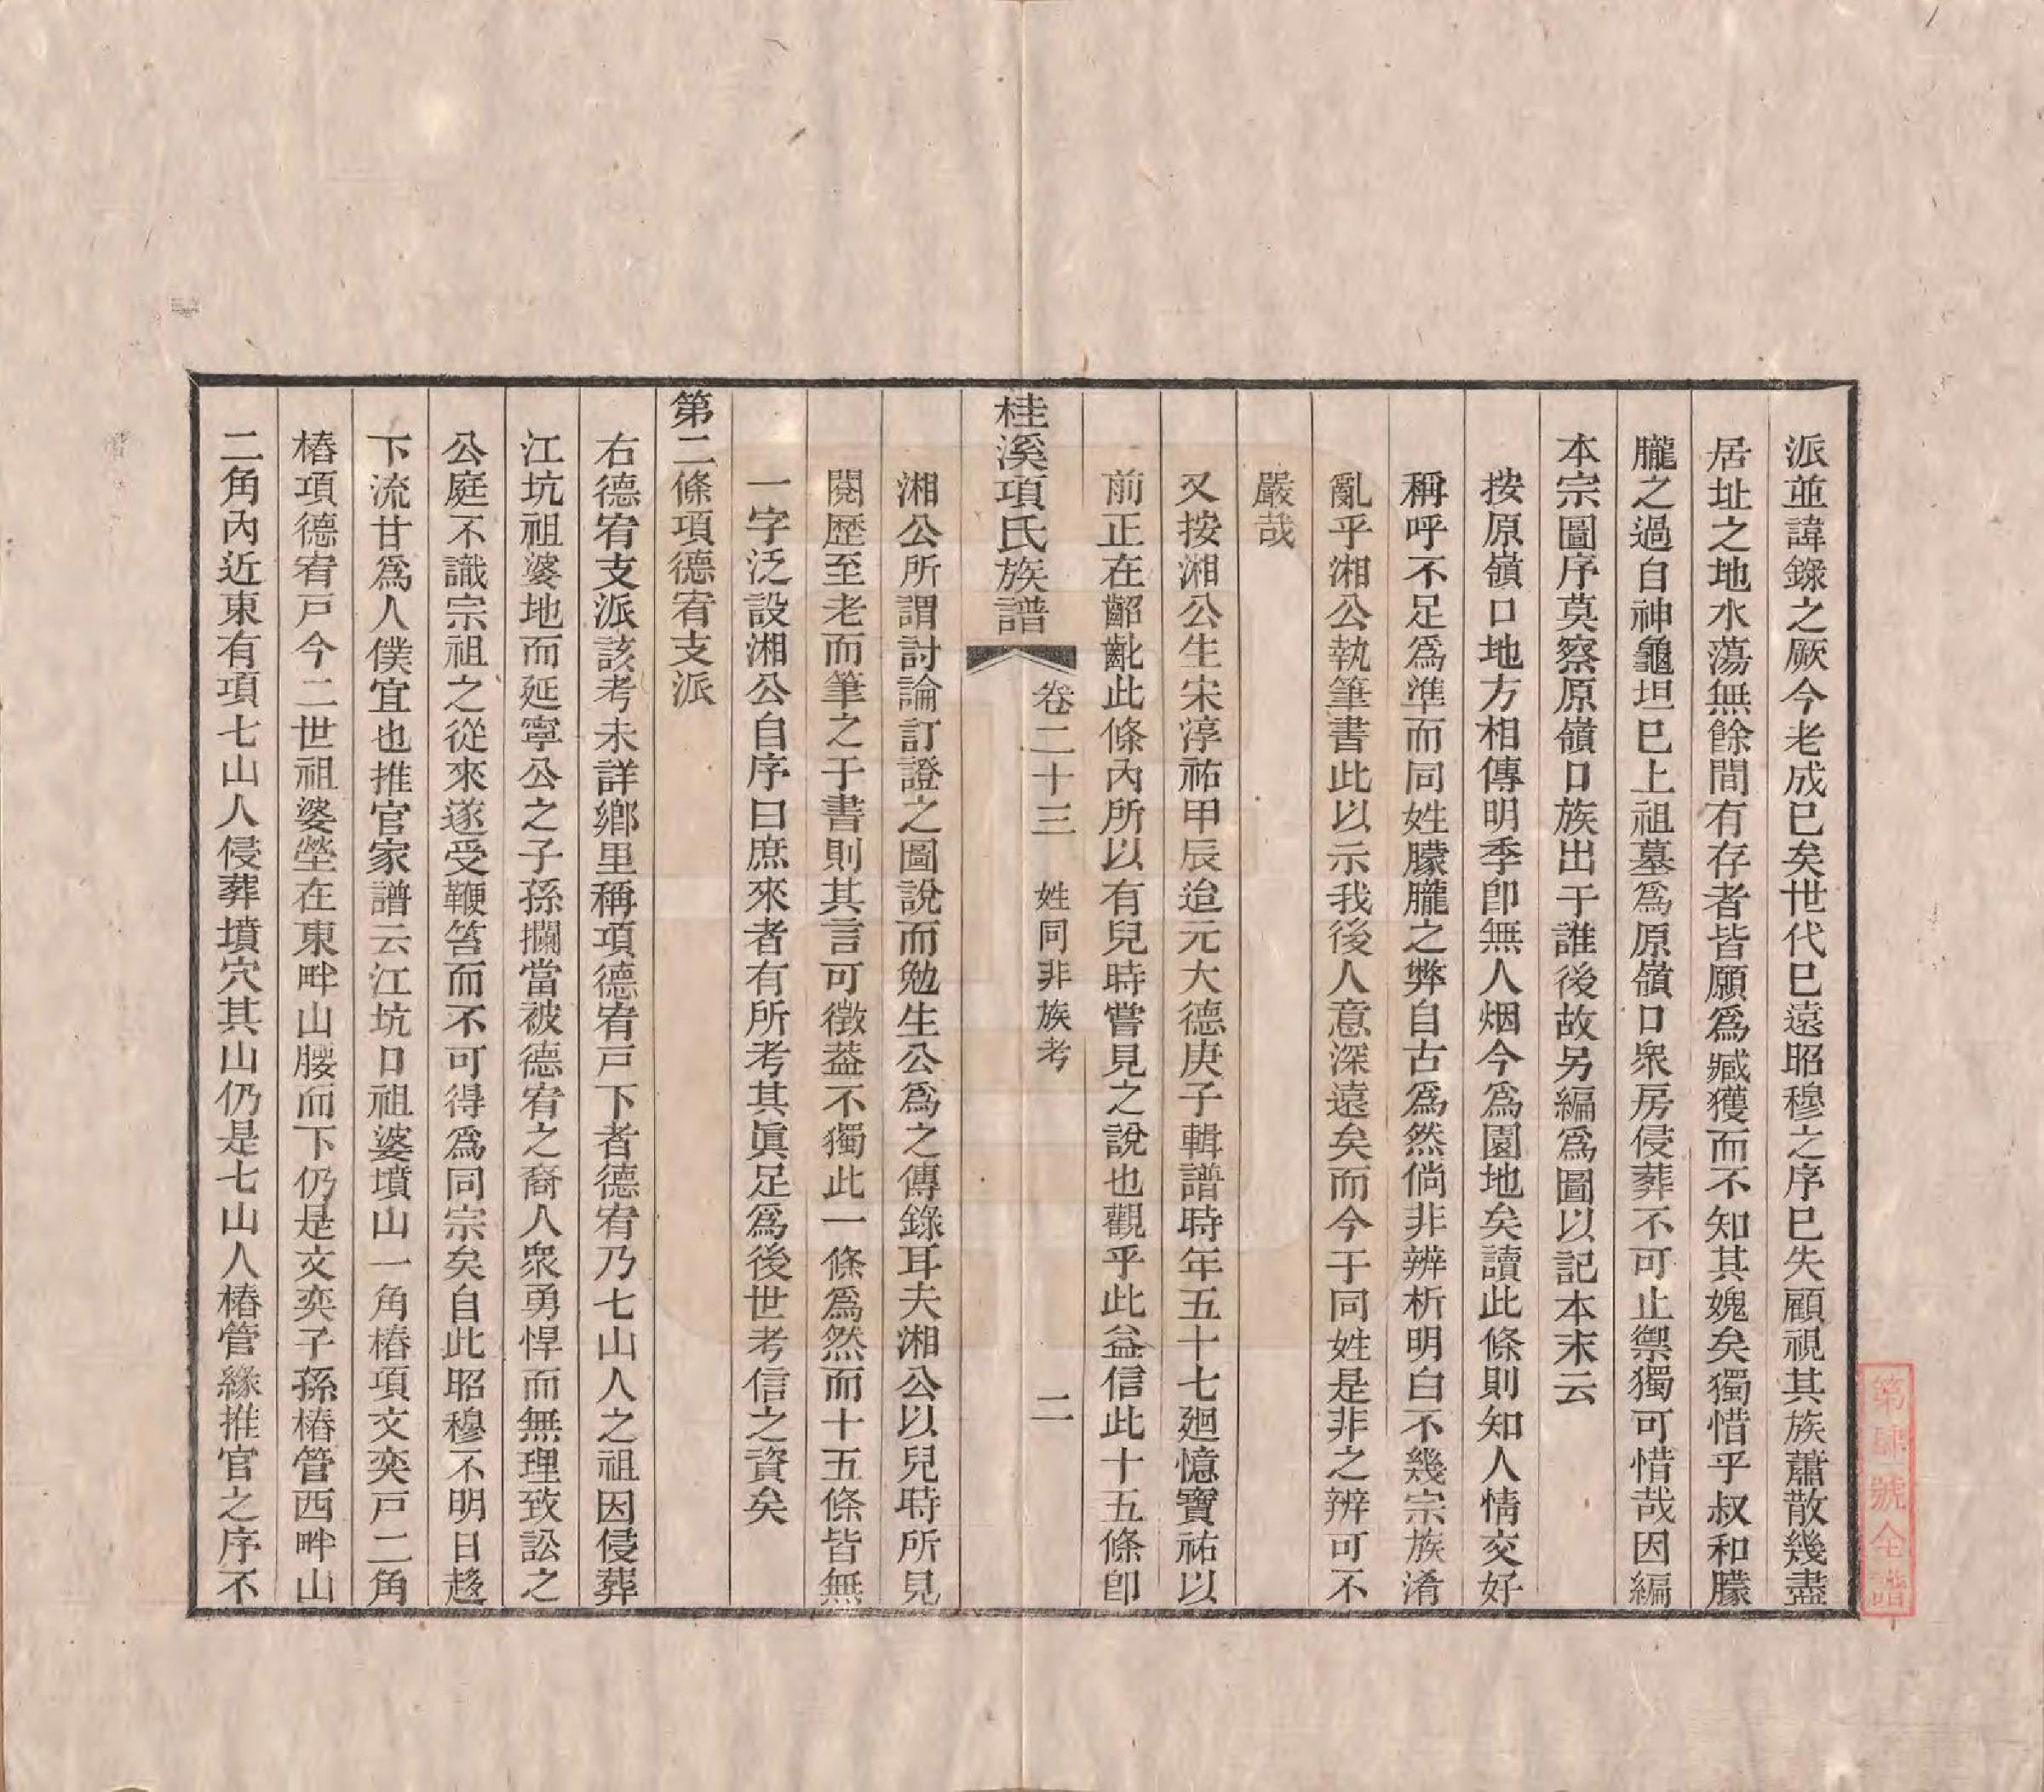 派並諱錄之厥今老成已矣世代已遠昭穆之序已失顧視其族蕭散幾盡
居址之地水蕩無餘間有存者皆願爲臧獲而不知其媿矣獨惜乎叔和朦
朧之過自神龜坦已上祖墓爲原嶺口衆房侵葬不可止禦獨可惜哉因編
本宗圖序莫察原嶺口族出于誰後故另編爲圖以記本末云
按原嶺口地方相傳明季卽無人烟今爲園地矣讀此條則知人情交好
稱呼不足爲準而同姓朦朧之弊自古爲然倘非辨析明白不幾宗族淆
亂乎湘公執筆書此以示我後人意深遠矣而今于同姓是非之辨可不
嚴哉
又按湘公生宋淳祐甲辰迨元大德庚子輯譜時年五十七廻憶寶祐以
前正在齠齔此條內所以有兒時嘗見之說也觀乎此益信此十五條卽
桂溪項氏族譜 卷二十三 姓同非族考 二
湘公所謂討論訂證之圖說而勉生公爲之傳錄耳夫湘公以兒時所見
閱歷至老而筆之于書則其言可徵葢不獨此一條爲然而十五條皆無
一字泛設湘公自序曰庶來者有所考其眞足爲後世考信之資矣
第二條項德宥支派
右德宥支派該考未詳鄉里稱項德宥戶下者德宥乃七山人之祖因侵葬
江坑祖婆地而延寧公之子孫攔當被德宥之裔人衆勇悍而無理致訟之
公庭不識宗祖之從來遂受鞭笞而不可得爲同宗矣自此昭穆不明日趍
下流甘爲人僕宜也推官家譜云江坑口祖婆墳山一角樁項文奕戶二角
樁項德宥戶今二世祖婆塋在東畔山腰而下仍是文奕子孫樁管西畔山
二角內近東有項七山人侵葬墳穴其山仍是七山人樁管緣推官之序不
第肆號全譜